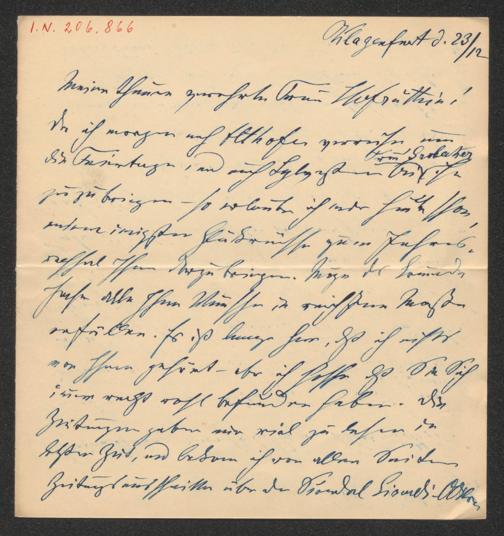 I.N. 206.866
Klagenfurt d. 23/12
Meine theure verehrte Frau Hofräthin!
Da ich morgen nach Althofen verreise um
die Feiertage, und auch Sylvester
zuzubringen – so erlaube ich mir heute schon,
meine innigsten Glückwünsche zum Jahres-
wechsel Ihnen darzubringen. Möge das kommende
Jahr alle Ihre Wünsche in reichstem Maße
erfüllen. Es ist lange her, daß ich nichts
von Ihnen gehört – aber ich hoffe daß Sie Sich
immer recht wohl befunden haben. Die
Zeitungen gaben mir viel zu lesen in
letzter Zeit, und bekam ich von allen Seiten
Zeitungsausschnitte über den Skandal Girardi-Odilon